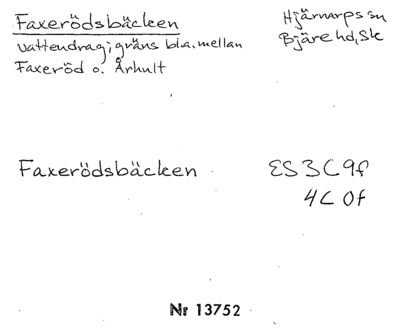 Faxerödsbäcken
Hjärnarps sn
vattendrag; gräns bl.a. mellan
Bjäre hd, Sk
Faxeröd o. Århult
Faxerödsbäcken
ES 3C 9f
4C 0f
Nr 13752